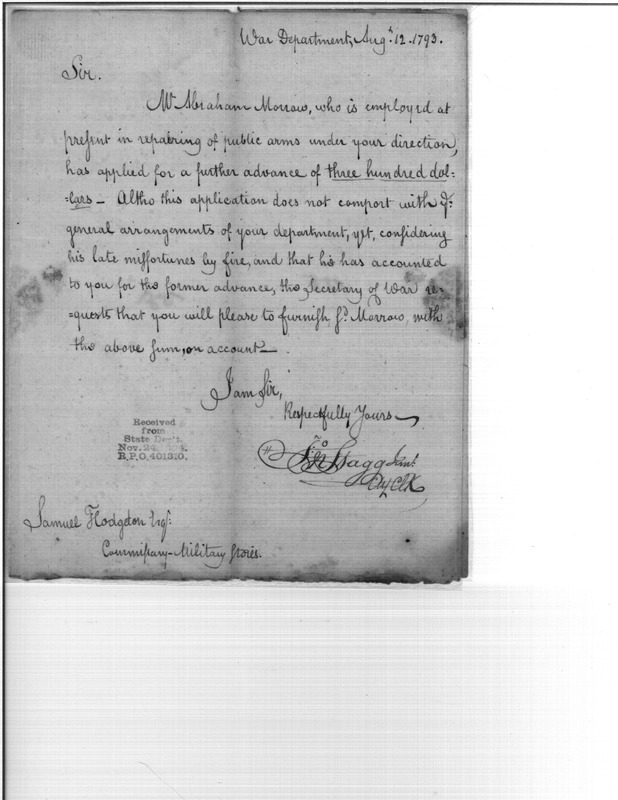 War Department, Augt. 12. 1793.
Sir.
Mr Abraham Morrow, who is employed at
present in repairing of public arms under your direction,
has applied for a further advance of three hundred dol-
-lars – Altho this application does not comport with ye.
general arrangements of your department, yet, considering
his late missfortunes by fire, and that he has accounted
to you for the former advance, the Secretary of War re-
-quests that you will please to furnish sd. Morrow, with
the above sum, on account –
I am Sir,
Respectfully Yours
Jno Stagg Junr.
Chf Clk
Received
from
State Dep't.
Nov. 24,
R.P.O. 401310.
Samuel Hodgdon Esqr.
Commissary-Military Stores.